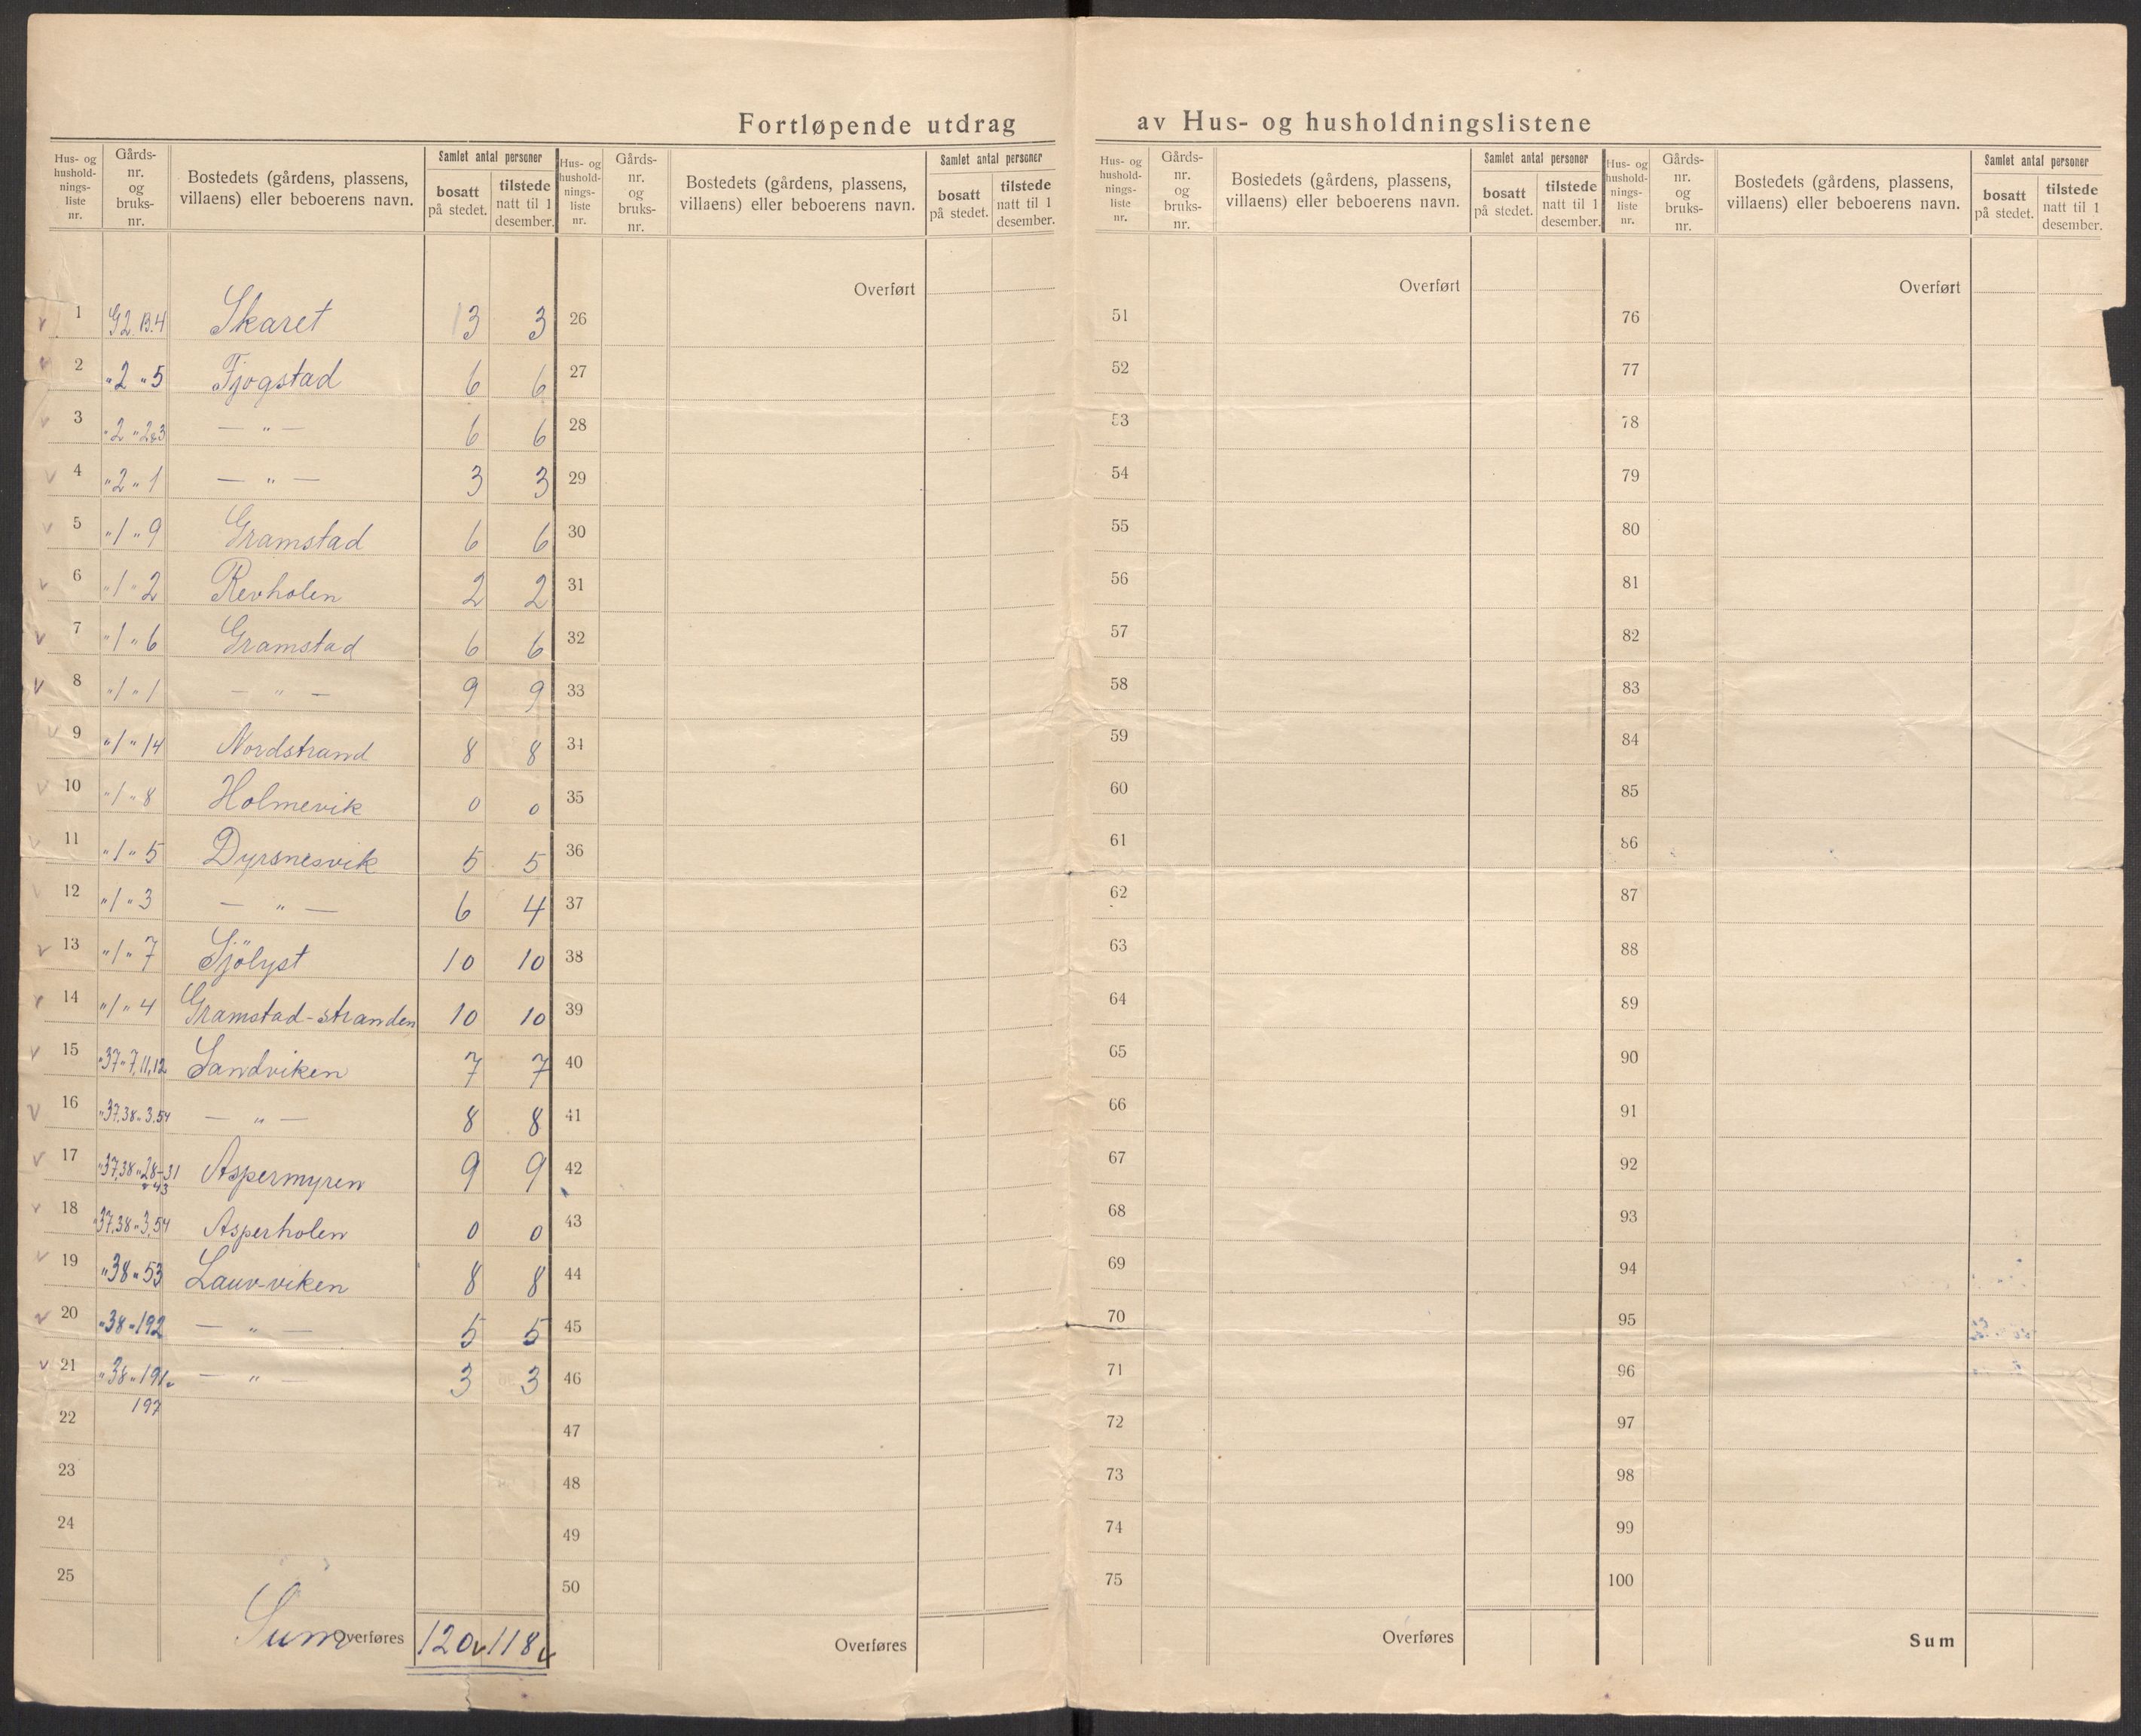 Fortløpende utdrag av Hus- og husholdningslistene
Hus- og hushold-nings-liste nr. Gårds-nr. og bruks-nr. Bostedets (gårdens, plassens, villaens) eller beboerens navn. Samlet antal personer bosatt på stedet. tilstede natt til 1 desember.
1 G2 B.4 Skaret 3 3
2 " 2 " 5 Fjogstad 6 6
3 " 2 " 2&3 — " — 6 6
4 " 2 " 1 — " — 3 3
5 " 1 " 9 Gramstad 6 6
6 " 1 " 2 Revholen 2 2
7 " 1 " 6 Gramstad 6 6
8 " 1 " 1 — " — 9 9
9 " 1 " 14 Nordstrand 8 8
10 " 1 " 8 Holmevik 0 0
11 " 1 " 5 Dyrsnesvik 5 5
12 " 1 " 3 — " — 6 4
13 " 1 " 7 Sjölyst 10 10
14 " 1 " 4 Gramstad-stranden 10 10
15 " 37 " 7,11,12 Sandviken 7 7
16 " 37,38 " 3,54 — " — 8 8
17 " 37,38 " 28-31 " 43 Aspermyren 9 9
18 " 37,38 " 3,54 Asperholen 0 0
19 " 38 " 53 Lauv-viken 8 8
20 " 38 " 192 — " — 5 5
21 " 38 " 191 " 197 — " — 3 3
22
23
24
25
Sum Overføres 120 118
Hus- og hushold-nings-liste nr. Gårds-nr. og bruks-nr. Bostedets (gårdens, plassens, villaens) eller beboerens navn. Samlet antal personer bosatt på stedet. tilstede natt til 1 desember.
Overført
26
27
28
29
30
31
32
33
34
35
36
37
38
39
40
41
42
43
44
45
46
47
48
49
50
Overføres
Hus- og hushold-nings-liste nr. Gårds-nr. og bruks-nr. Bostedets (gårdens, plassens, villaens) eller beboerens navn. Samlet antal personer bosatt på stedet. tilstede natt til 1 desember.
Overført
51
52
53
54
55
56
57
58
59
60
61
62
63
64
65
66
67
68
69
70
71
72
73
74
75
Overføres
Hus- og hushold-nings-liste nr. Gårds-nr. og bruks-nr. Bostedets (gårdens, plassens, villaens) eller beboerens navn. Samlet antal personer bosatt på stedet. tilstede natt til 1 desember.
Overført
76
77
78
79
80
81
82
83
84
85
86
87
88
89
90
91
92
93
94
95
96
97
98
99
100
Sum